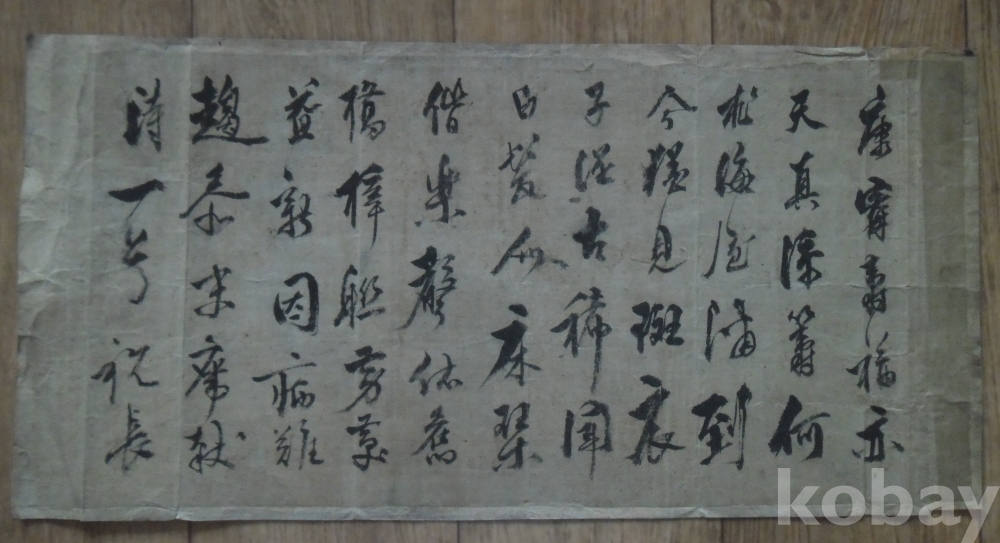 康寧壽福亦
天真添籌何
海屋濱到
今猶見斑衣
子從古稀聞
白髮人床琴
偕樂聲依舊
橋梓聯芳景
益新因病難
趨參末席
詩一首祝長
kobay